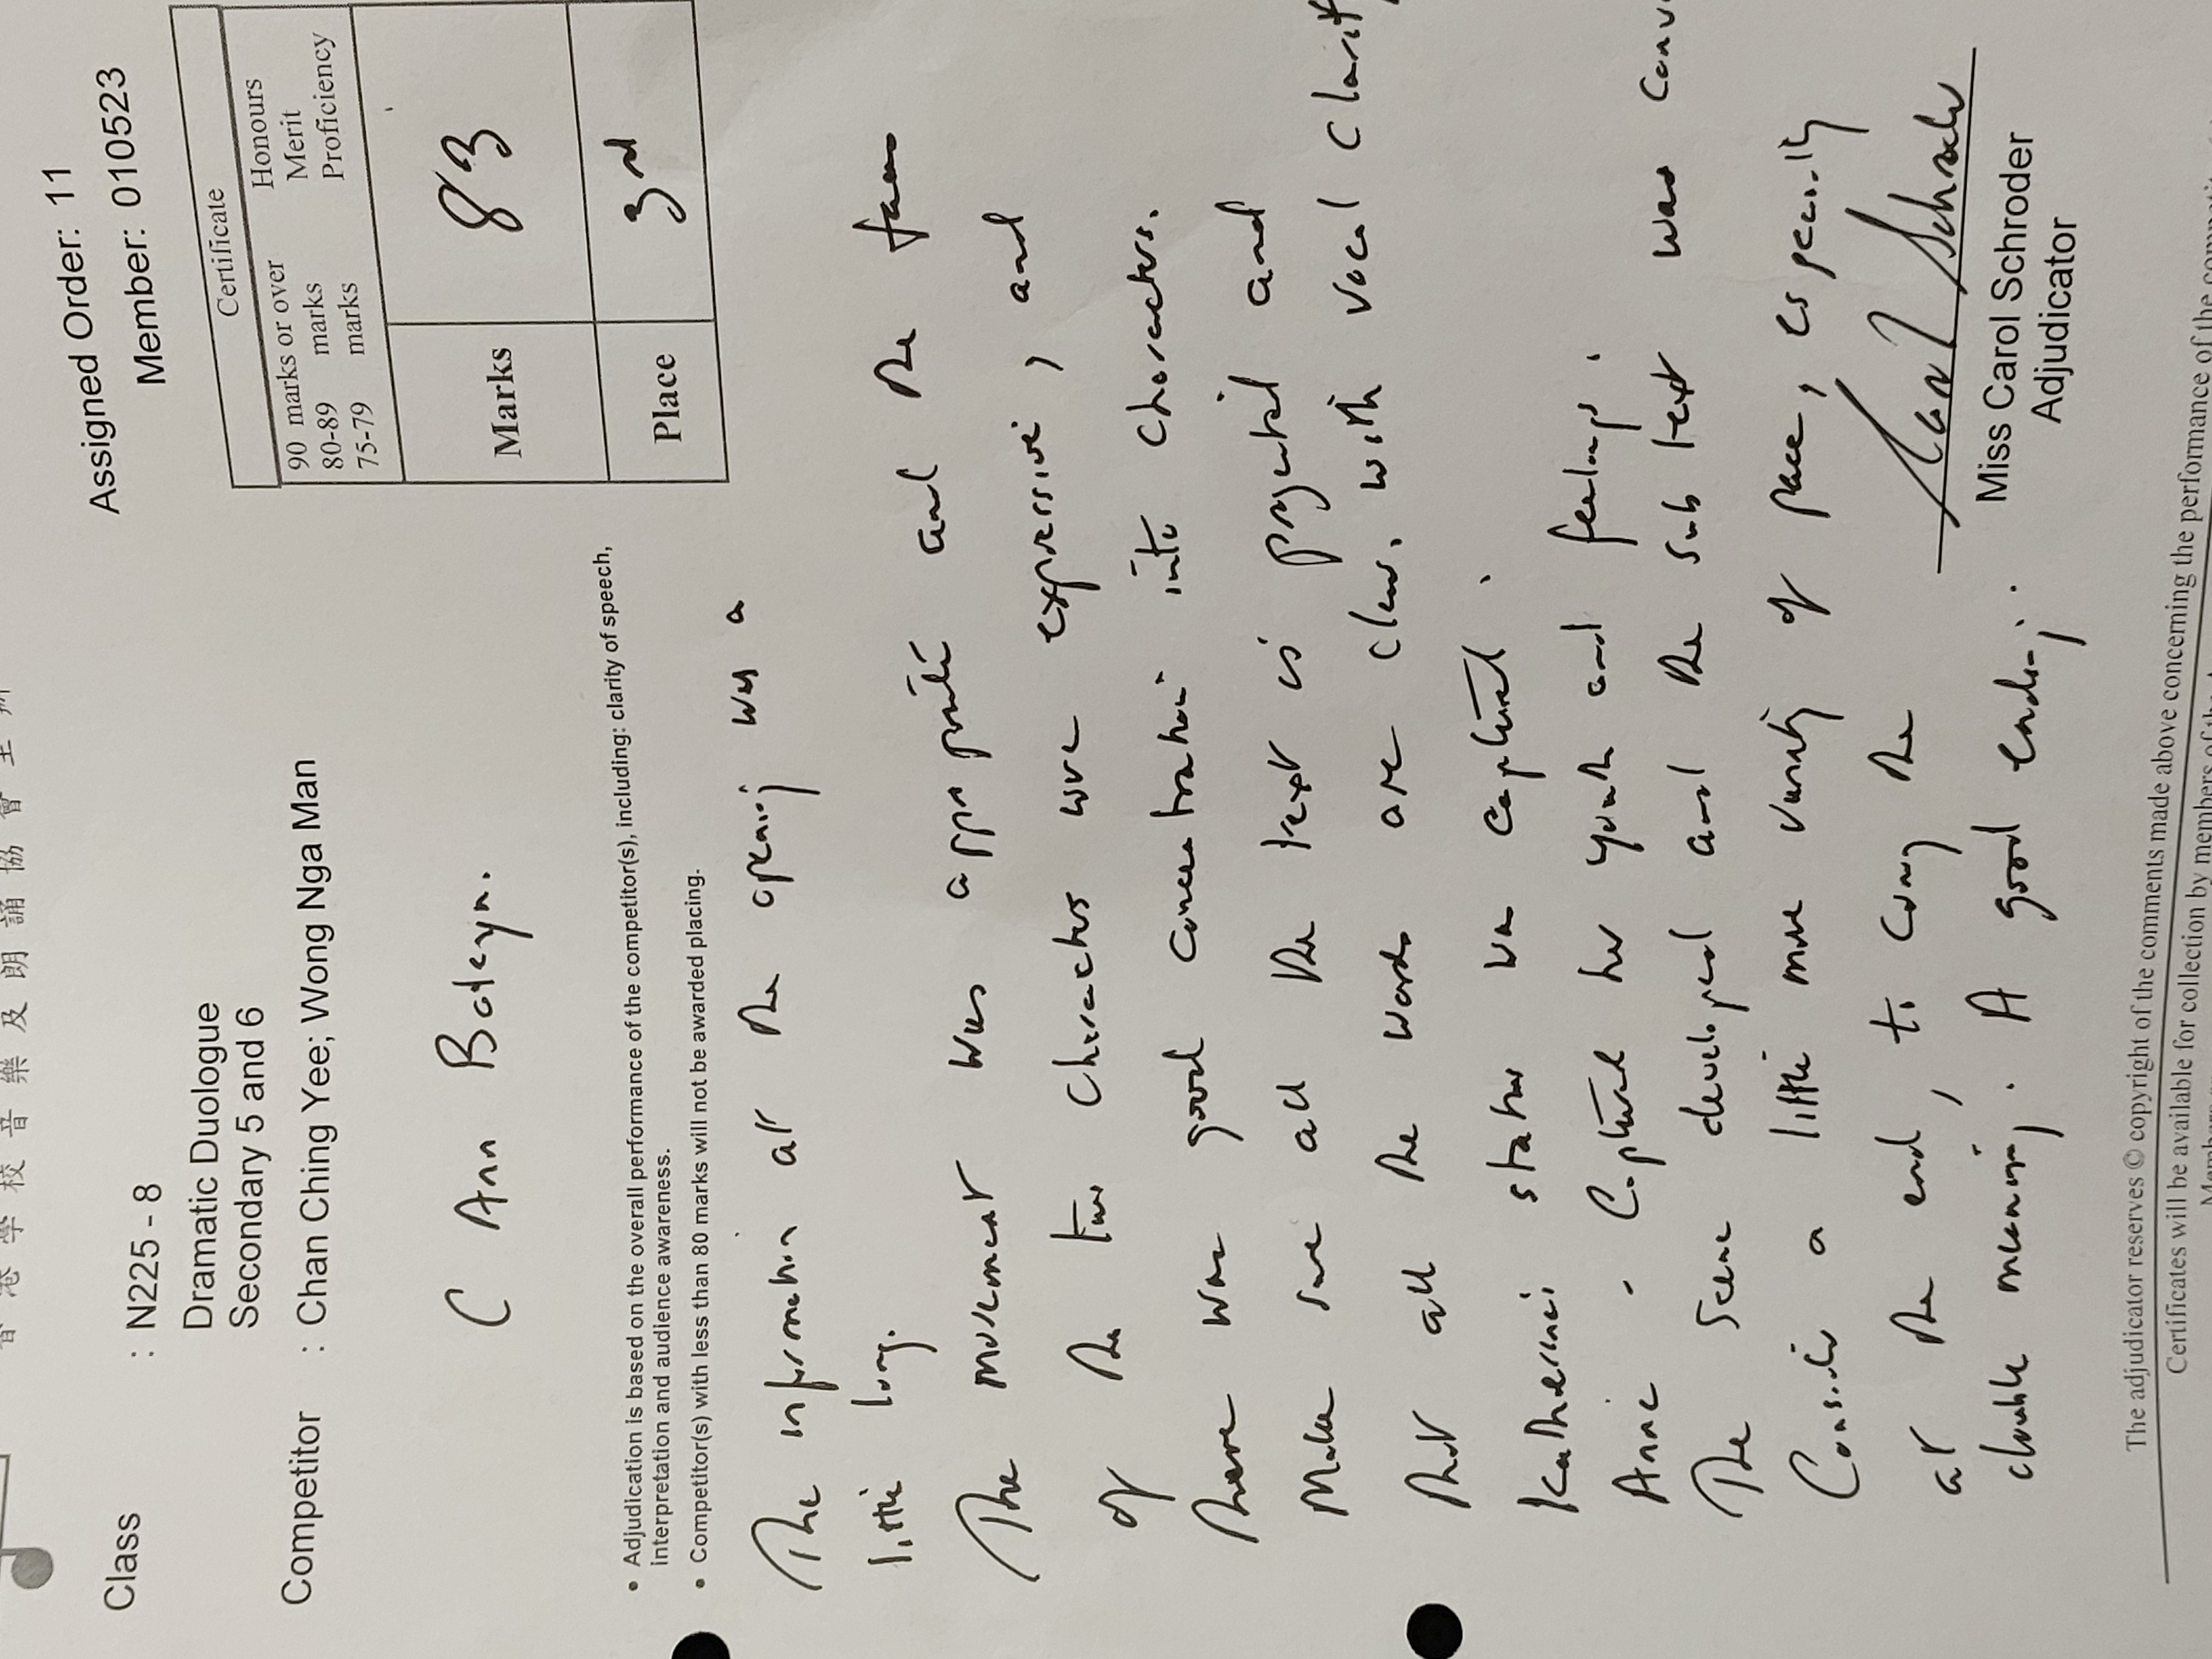 香港學校音樂及朗誦協會主辦
Assigned Order: 11
Member: 010523
Class : N225 - 8
Dramatic Duologue
Secondary 5 and 6
Competitor : Chan Ching Yee; Wong Nga Man
Certificate
90 marks or over Honours
80-89 marks Merit
75-79 marks Proficiency
Marks 83
Place 3rd
C Ann Boleyn.
• Adjudication is based on the overall performance of the competitor(s), including: clarity of speech,
interpretation and audience awareness.
• Competitor(s) with less than 80 marks will not be awarded placing.
The information at the opening was a
little long.
The movement was appropriate and the faces
of the two characters were expressive, and
there was good concentration into characters.
Make sure all the text is projected and
that all the words are clear, with vocal clarity
Katherine's status was captured.
Anne - Captured her youth and feelings.
The scene developed and the sub text was conv
Consider a little more variety of pace, especially
at the end, to convey the
double meaning. A good ending.
Carol Schroder
Miss Carol Schroder
Adjudicator
The adjudicator reserves © copyright of the comments made above concerning the performance of the
Certificates will be available for collection by members of the